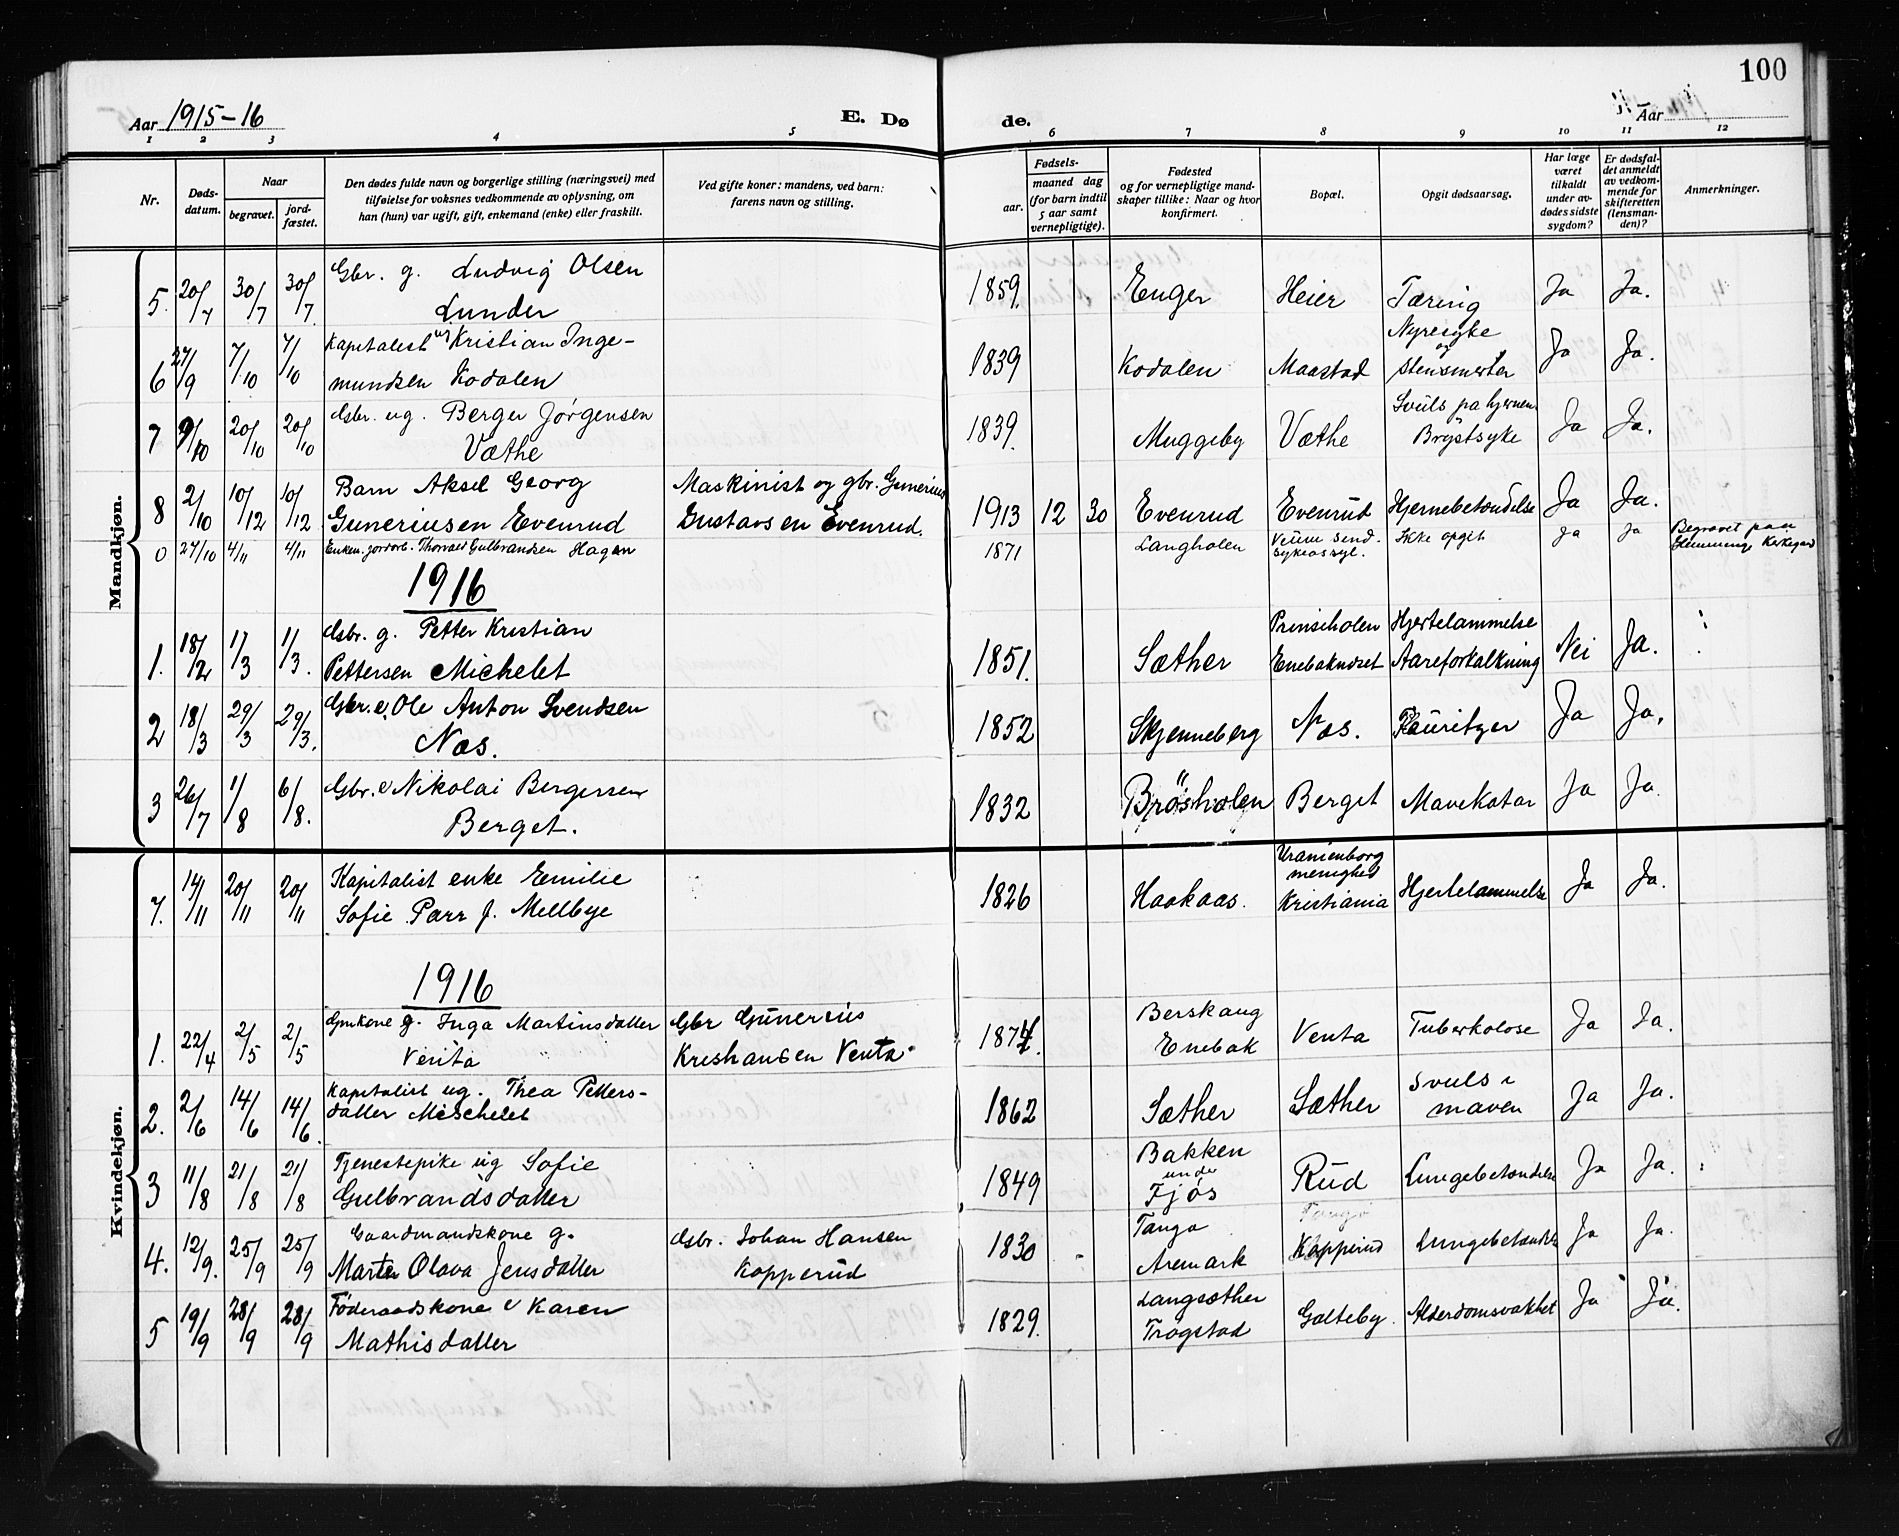 100
Aar 1915-16
E. Dø
de.
Aar
1 2 3 4 5 6 7 8 9 10 11 12
Nr.
Døds-
datum.
Naar
begravet.
jord-
fæstet.
Den dødes fulde navn og borgerlige stilling (næringsvei) med
tilføielse for voksnes vedkommende av oplysning, om
han (hun) var ugift, gift, enkemand (enke) eller fraskilt.
Ved gifte koner: mandens, ved barn:
farens navn og stilling.
Fødsels-
aar.
maaned dag
(for barn indtil
5 aar samt
vernepligtige).
Fødested
og for vernepligtige mand-
skaper tillike: Naar og hvor
konfirmert.
Bopæl.
Opgit dødsaarsag.
Har læge
været
tilkaldt
under av-
dødes sidste
sygdom?
Er dødsfal-
det anmeldt
av vedkom-
mende for
skifteretten
(lensman-
den)?
Anmerkninger.
Mandkjøn.
5. 20/7 30/7 30/7. Gbr. g. Ludvig Olsen
Lunder 1859. Enger Heier Tæring Ja Ja.
6 27/9 7/10 7/10 Kapitalist ug Kristian Inge-
mundsen Kodalen 1839 Kodalen Maastad Nyresyke
og
stensmerter Ja Ja.
7 9/10 20/10 20/10 Gbr. ug. Berger Jørgensen
Væthe 1839. Muggeby Væthe Svuls pa hjernen
Brystsyke Ja Ja.
8 2/10 10/12 10/12 Barn Aksel Georg
Guneriusen Evenrud Maskinist og gbr. Gunerius
Gustavsen Evenrud. 1913 12 30 Evenrud Evenrud Hjernebetændelse Ja Ja.
0 27/10 4/11 4/11 Enkem. jordarb. Thorvald Gulbrandsen Hagen 1871 Langholen Veum send.
sykeasyl. Ikke opgit Ja Ja Begravet paa
Kirkegard
1916
1. 18/2 1/3 1/3. Gbr. g. Petter Kristian
Pettersen Michelet 1851. Sæther Prinseholen
Enebakneset Hjertelammelse
Aareforkalkning Nei Ja.
2 18/3 29/3 29/3. Gbr. e. Ole Anton Svendsen
Næs. 1852 Skjenneberg Næs. Plauritzer Ja Ja.
3 26/7 1/8 6/8. Gbr. e Nikolai Bergersen
Berget. 1832 Brøsholen Berget Mavekatar Ja Ja.
Kvindekjøn.
7. 14/11 20/11 20/11 Kapitalist enke Emilie
Sofie Parr f. Mellbye 1826 Haakaas. Uranienborg
menighed
Kristiania Hjertelammelse Ja Ja.
1916
1. 22/4 2/5 2/5 Gmkone g. Inga Martinsdatter
Venta Gbr Gunerius
Kreshansen Venta. 1874. Berskaug
Enebak Venta Tuberkolose Ja Ja.
2. 2/6 14/6 14/6. Kapitalist ug. Thea Petters-
datter Meschelet 1862 Sæther Sæther Svuls i
maven Ja Ja.
3 11/8 21/8 21/8 Tjenestepike ug Sofie
Gulbrandsdatter 1849 Bakken
under
Fjøs Rud Lungebetændelse Ja Ja.
4. 12/9. 25/9 25/9 Gaardmandskone g.
Marte Olava Jensdatter Gbr. Johan Hansen
Kopperud 1830 Tanga
Aremark Kopperud Lungebetændelse Ja Ja.
5 19/9 28/9 28/9 Føderaadskone e Karen
Mathisdatter 1829. Langsæther
Trøgstad Galteby. Alderdomsvakhet Ja Ja.